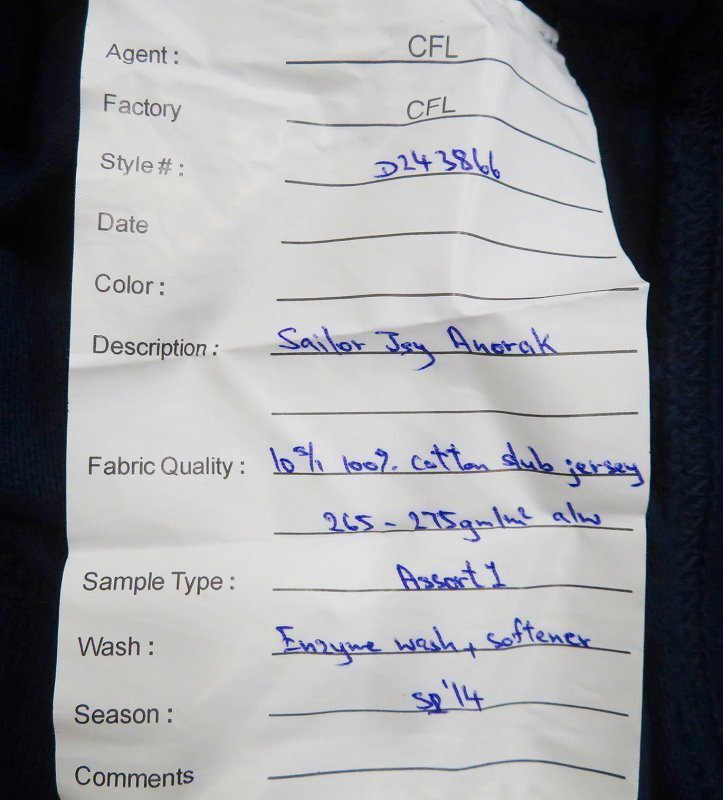 Agent : CFL
Factory CFL
Style # : D243866
Date
Color :
Description : Sailor Jsy Anorak
Fabric Quality : 10s/1 100% cotton slub jersey
265 - 275gm/m² a/w
Sample Type : Assort 1
Wash : Enzyme wash, softener
Season : sp'14
Comments